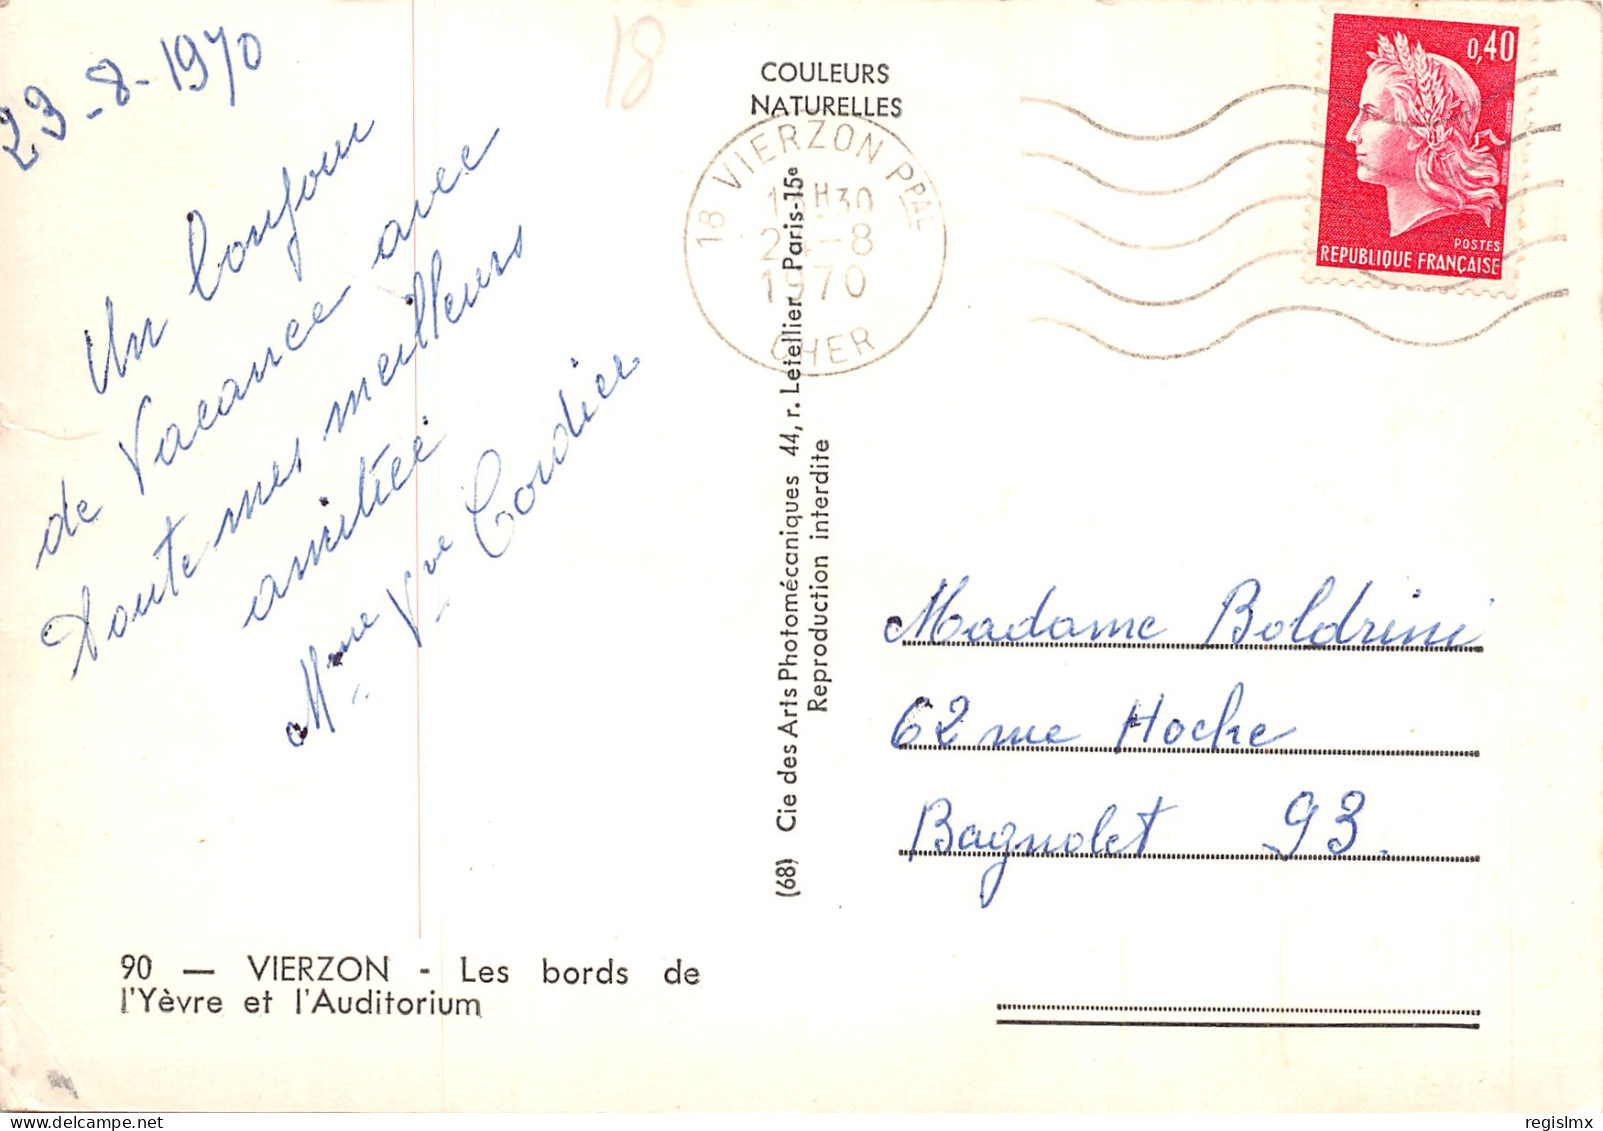 23-8-1970
Un bonjour
de Vacance avec
toute mes meilleurs
amitiée
Mme Vve Cordier
18
COULEURS
NATURELLES
18 VIERZON PPAL
H30
24-8
1970
CHER
0,40
POSTES
REPUBLIQUE FRANÇAISE
(68) Cie des Arts Photomécaniques 44, r. Letellier Paris-15e
Reproduction interdite
Madame Boldrini
62 rue Hoche
Bagnolet 93.
90 — VIERZON - Les bords de
l'Yèvre et l'Auditorium
delcampe.net
regislmx